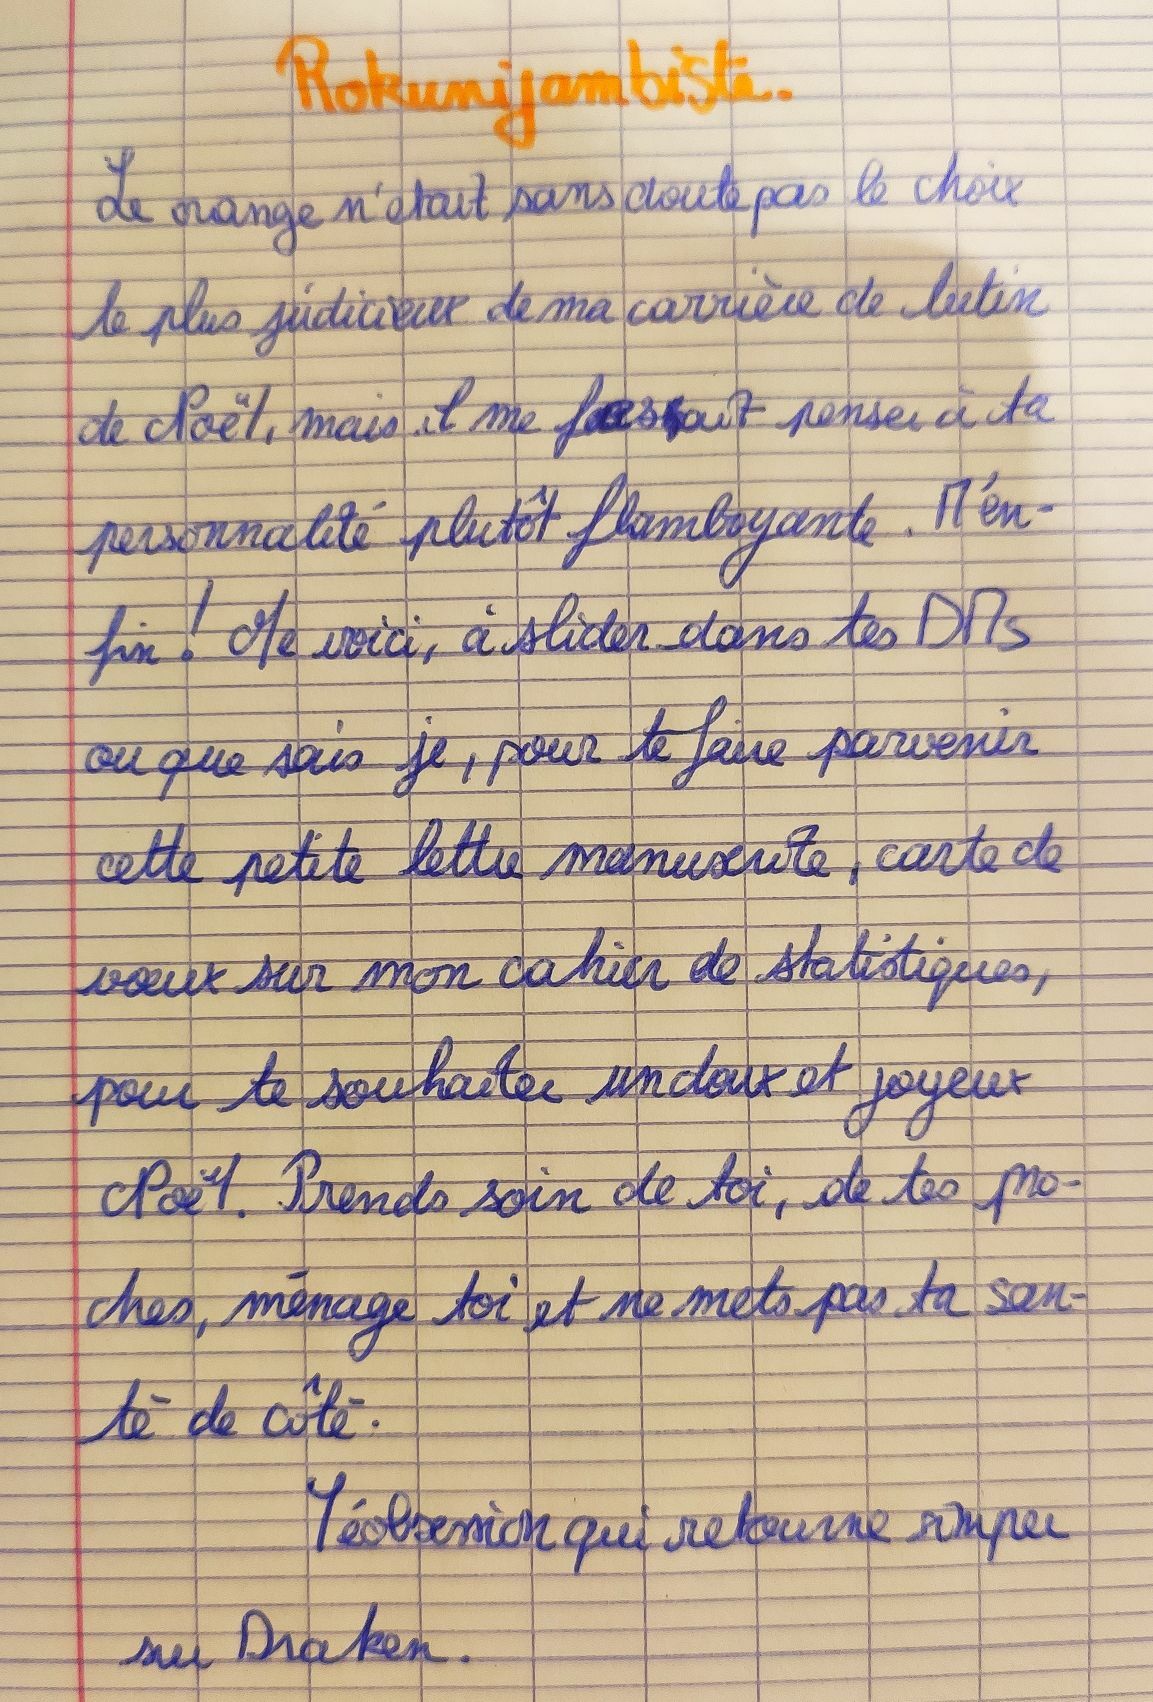 Rokunijambiste.
Le orange n'était sans doute pas le choix
le plus judicieux de ma carrière de lutin
de Noël, mais il me faisait penser à ta
personnalité plutôt flamboyante. M'en-
fin! Me voici, à slider dans tes DMs
ou que sais je, pour te faire parvenir
cette petite lettre manuscrite, carte de
vœux sur mon cahier de statistiques,
pour te souhaiter un doux et joyeux
Noël. Prends soin de toi, de tes pro-
ches, ménage toi et ne mets pas ta san-
té de côté.
Téobsession qui retourne simper
sur Draken.